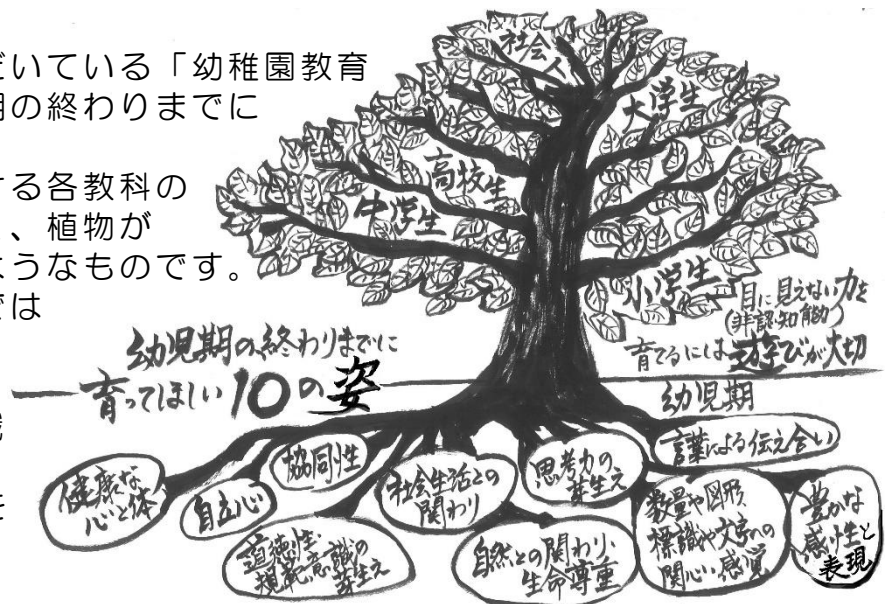 だいている「幼稚園教育
期の終わりまでに
する各教科の
、植物が
ようなものです。
では
社会人
大学生
高校生
中学生
小学生
目に見えない力を
(非認知能力)
育てるには遊びが大切
幼児期の終わりまでに
育ってほしい10の姿
幼児期
健康な
心と体
自立心
協同性
道徳性・
規範意識の
芽生え
社会生活との
関わり
思考力の
芽生え
自然との関わり・
生命尊重
言葉による伝え合い
数量や図形、
標識や文字への
関心・感覚
豊かな
感性と
表現